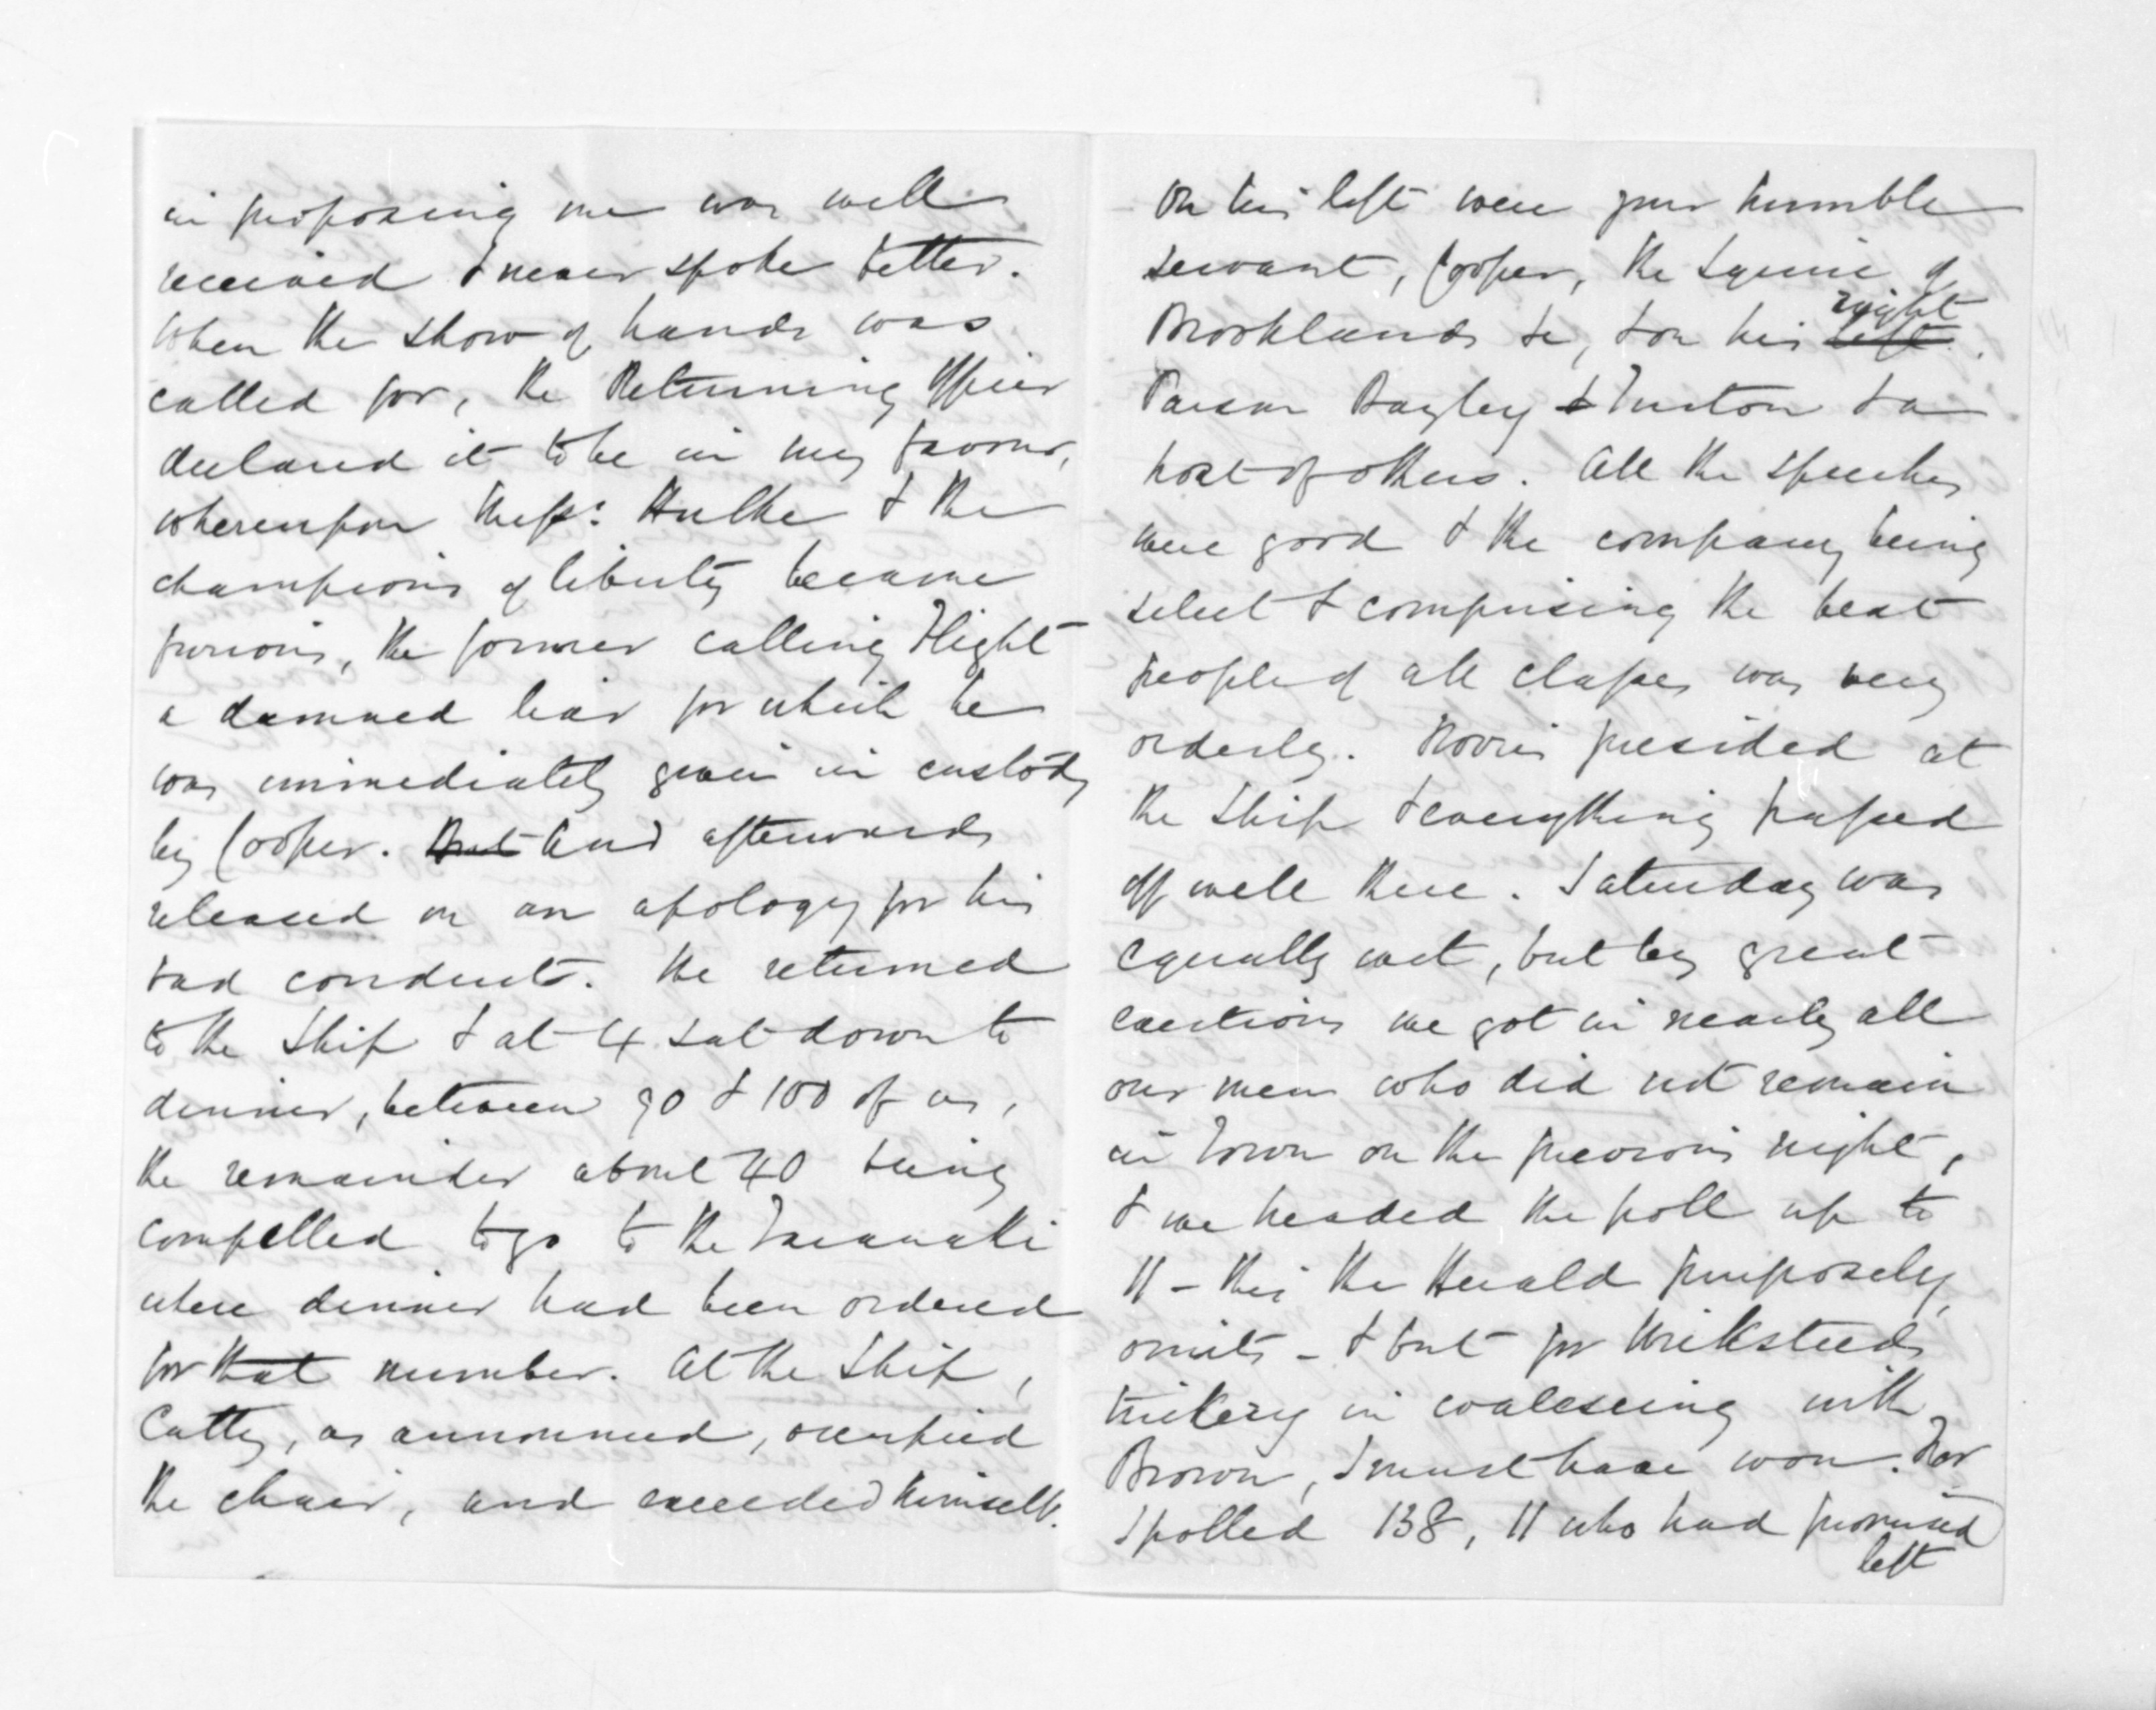 in proposing me was well
received & never spoke better.
When the show of hands was
called for, the Returning Officer
declared it to be in my favour,
whereupon Messrs: Hulke & the
champions of liberty became
furious, the former calling Flight
a damned liar for which he
was immediately given in custody
by Cooper. But And afterwards
released on an apology for his
bad conduct. We returned
to the Ship & at 4 sat down to
dinner, between 90 & 100 of us,
the remainder about 40 being
compelled to go to the Taranaki
where dinner had been ordered
for that number. At the Ship,
Cutty, as announced, occupied
the chair, and exceeded himself.
On his left were your humble
servant, Cooper, the Squire of
Brooklands &c, & on his left right
Parson Bayley & Turton & a
host of others. All the speeches
were good & the company being
select & comprising the best
people of all classes was very
orderly. Norris presided at
the Ship & everything passed
off well there. Saturday was
equally wet, but by great
exertions we got in nearly all
our men who did not remain
in Town on the previous night,
& we headed the poll up to
11 - this the Herald purposely
omits - & but for Wicksteeds
trickery in coalescing with
Brown, I must have won. For
I polled 138, 11 who had promised
left